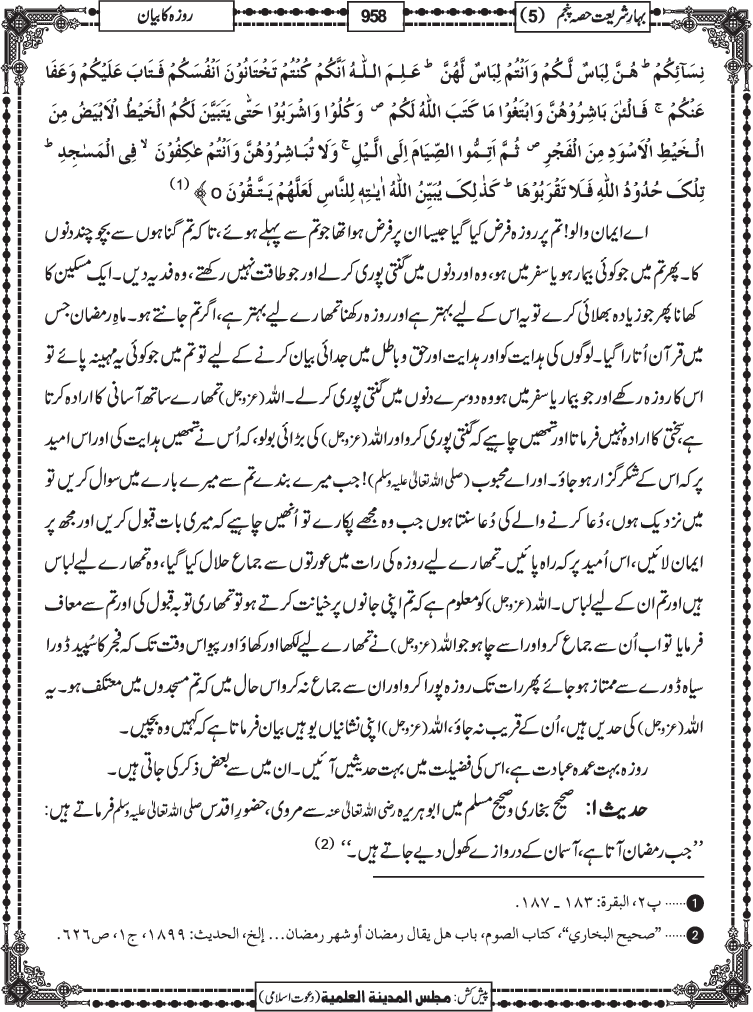 بہارِ شریعت حصہ پنجم (5)
958
روزہ کا بیان
نِسَآئِكُمْ ؕ هُنَّ لِبَاسٌ لَّكُمْ وَاَنْتُمْ لِبَاسٌ لَّهُنَّ ؕ عَلِمَ اللّٰهُ اَنَّكُمْ كُنْتُمْ تَخْتَانُوْنَ اَنْفُسَكُمْ فَتَابَ عَلَيْكُمْ وَعَفَا
عَنْكُمْ ۚ فَالْـٰٔنَ بَاشِرُوْهُنَّ وَابْتَغُوْا مَا كَتَبَ اللّٰهُ لَكُمْ ص وَكُلُوْا وَاشْرَبُوْا حَتّٰى يَتَبَيَّنَ لَكُمُ الْخَيْطُ الْاَبْيَضُ مِنَ
الْخَيْطِ الْاَسْوَدِ مِنَ الْفَجْرِ ص ثُمَّ اَتِمُّوا الصِّيَامَ اِلَى الَّيْلِ ۚ وَلَا تُبَاشِرُوْهُنَّ وَاَنْتُمْ عٰكِفُوْنَ ۙ فِى الْمَسٰجِدِ ؕ
تِلْكَ حُدُوْدُ اللّٰهِ فَلَا تَقْرَبُوْهَا ؕ كَذٰلِكَ يُبَيِّنُ اللّٰهُ اٰيٰتِهٖ لِلنَّاسِ لَعَلَّهُمْ يَتَّقُوْنَ o ﴾ (1)
اے ایمان والو! تم پر روزہ فرض کیا گیا جیسا ان پر فرض ہوا تھا جو تم سے پہلے ہوئے، تاکہ تم گناہوں سے بچو چند دنوں
کا۔ پھر تم میں جو کوئی بیمار ہو یا سفر میں ہو، وہ اور دنوں میں گنتی پوری کرلے اور جو طاقت نہیں رکھتے، وہ فدیہ دیں۔ ایک مسکین کا
کھانا پھر جو زیادہ بھلائی کرے تو یہ اس کے لیے بہتر ہے اور روزہ رکھنا تمھارے لیے بہتر ہے، اگر تم جانتے ہو۔ ماہِ رمضان جس
میں قرآن اُتارا گیا۔ لوگوں کی ہدایت کو اور ہدایت اور حق و باطل میں جدائی بیان کرنے کے لیے تو تم میں جو کوئی یہ مہینہ پائے تو
اس کا روزہ رکھے اور جو بیمار یا سفر میں ہو وہ دوسرے دنوں میں گنتی پوری کرلے۔ اللہ (عزوجل) تمھارے ساتھ آسانی کا ارادہ کرتا
ہے، سختی کا ارادہ نہیں فرماتا اور تمھیں چاہیے کہ گنتی پوری کرو اور اللہ (عزوجل) کی بڑائی بولو، کہ اُس نے تمھیں ہدایت کی اور اس امید
پر کہ اس کے شکر گزار ہو جاؤ۔ اور اے محبوب (صلی اللہ تعالیٰ علیہ وسلم)! جب میرے بندے تم سے میرے بارے میں سوال کریں تو
میں نزدیک ہوں، دُعا کرنے والے کی دُعا سنتا ہوں جب وہ مجھے پکارے تو اُنھیں چاہیے کہ میری بات قبول کریں اور مجھ پر
ایمان لائیں، اس اُمید پر کہ راہ پائیں۔ تمھارے لیے روزہ کی رات میں عورتوں سے جماع حلال کیا گیا، وہ تمھارے لیے لباس
ہیں اور تم ان کے لیے لباس۔ اللہ (عزوجل) کو معلوم ہے کہ تم اپنی جانوں پر خیانت کرتے ہو تو تمھاری توبہ قبول کی اور تم سے معاف
فرمایا تو اب اُن سے جماع کرو اور اسے چاہو جو اللہ (عزوجل) نے تمھارے لیے لکھا اور کھاؤ اور پیو اس وقت تک کہ فجر کا سُپید ڈورا
سیاہ ڈورے سے ممتاز ہو جائے پھر رات تک روزہ پورا کرو اور ان سے جماع نہ کرو اس حال میں کہ تم مسجدوں میں معتکف ہو۔ یہ
اللہ (عزوجل) کی حدیں ہیں، اُن کے قریب نہ جاؤ، اللہ (عزوجل) اپنی نشانیاں یوہیں بیان فرماتا ہے کہ کہیں وہ بچیں۔
روزہ بہت عمدہ عبادت ہے، اس کی فضیلت میں بہت حدیثیں آئیں۔ ان میں سے بعض ذکر کی جاتی ہیں۔
حدیث ۱: صحیح بخاری و صحیح مسلم میں ابوہریرہ رضی اللہ تعالیٰ عنہ سے مروی، حضورِ اقدس صلی اللہ تعالیٰ علیہ وسلم فرماتے ہیں:
”جب رمضان آتا ہے، آسمان کے دروازے کھول دیے جاتے ہیں۔“ (2)
1 ...... پ٢، البقرة: ١٨٣ ـ ١٨٧.
2 ...... ”صحيح البخاري“، كتاب الصوم، باب هل يقال رمضان أو شهر رمضان... إلخ، الحديث: ١٨٩٩، ج١، ص٦٢٦.
پیش کش: مجلس المدينة العلمية (دعوت اسلامی)